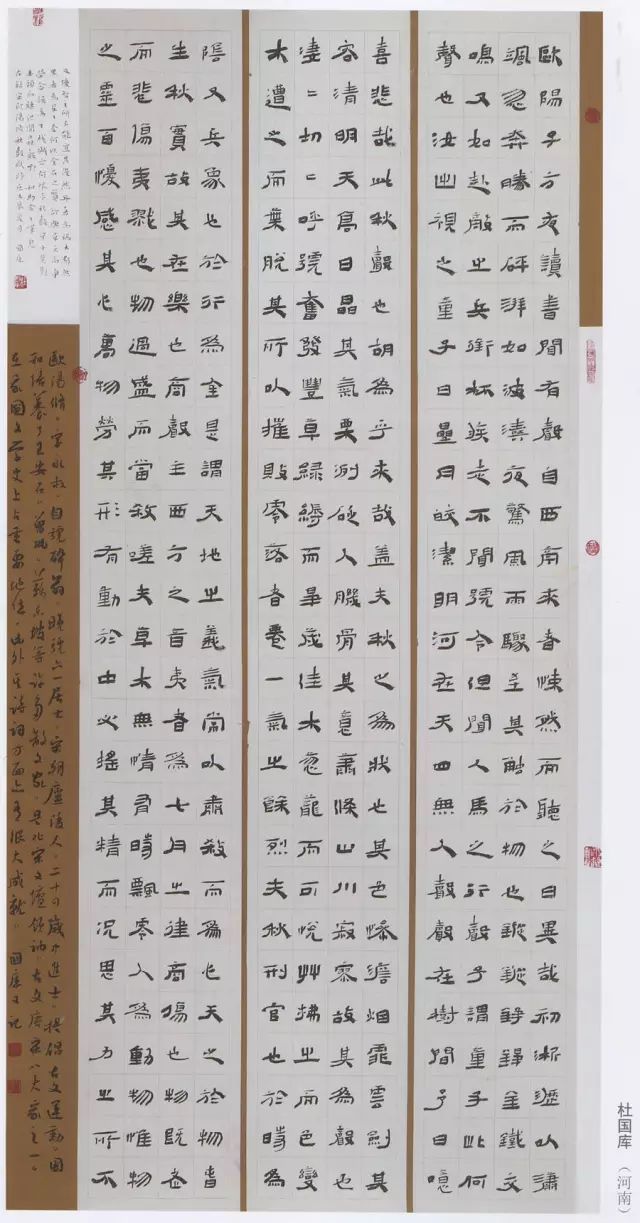 歐陽子方夜讀書聞有聲自西南來者悚然而聽之曰異哉初淅瀝以瀟
颯忽奔騰而砰湃如波濤夜驚風雨驟至其觸於物也鏦鏦錚錚金鐵交
鳴又如赴敵之兵銜枚疾走不聞號令但聞人馬之行聲予謂童子此何
聲也汝出視之童子曰星月皎潔明河在天四無人聲聲在樹間予曰噫
喜悲哉此秋聲也胡為乎來哉蓋夫秋之為狀也其色慘澹烟霏雲斂其
容清明天高日晶其氣栗冽砭人肌骨其意蕭條山川寂寥故其為聲也
淒〻切〻呼號奮發豐草綠縟而爭茂佳木葱蘢而可悅艸拂之而色變
木遭之而葉脫其所以摧敗零落者乃一氣之餘烈夫秋刑官也於時為
陰又兵象也於行為金是謂天地之義氣常以肅殺而為心天之於物春
生秋實故其在樂也商聲主西方之音夷者為七月之律商傷也物既老
而悲傷夷戮也物過盛而當殺嗟夫草木無情有時飄零人為動物惟物
之靈百憂感其心萬物勞其形有動於中必搖其精而況思其力之所不
歐陽脩，字永叔，自號醉翁，晚號六一居士，宋朝廬陵人，二十四歲中進士，提倡古文運動，因
和培養了王安石、曾鞏、蘇東坡等諸多散文家，是北宋文壇領袖，古文唐宋八大家之一，
在我國文學史上占重要地位，此外其詩詞方面亦有很大成就。國庫又記
杜国库（河南）